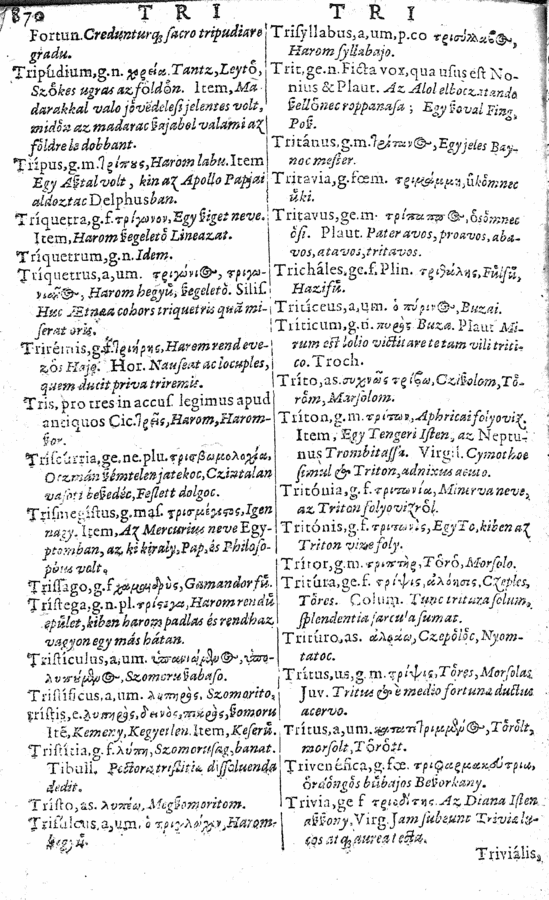 870 TRI TRI
Fortun. Credunturq; sacro tripudiare
gradu.
Tripudium, g.n. χορεία. Tantz, Leytő,
Szőkes ugras az földőn. Item, Ma-
darakkal valo jővëdelesi jelentes volt,
midőn az madarac ſajabol valami az
főldre le dobbant.
Trípus, g.m. τρίπους, Harom labu. Item
Egy Aſtal volt, kin az Apollo Papjai
aldoztac Delphusban.
Tríquetra, g.f. τρίγωνον, Egy ſiget neve.
Item, Harom ſegelető Lineazat.
Tríquetrum, g.n. Idem.
Tríquetrus, a, um. Harom hegyű, ſegelető. Silis.
Huc Ætnea cohors triquetris quã mi-
serat oris.
Trirémis, g.f. τριήρης, Harom rend eve-
zős Hajo. Hor. Nauseat ac locuples,
quem ducit priva triremis.
Tris, pro tres in accus legimus apud
antiquos Cic. τρεῖς, Harom, Harom-
ſor.
Triscúrria, ge. ne. plu. τρισβωμολοχία,
Orczmán ſémtelen jatekoc, Czintalan
beſedéc, Feslett dolgoc.
Trismegístus, g. mas. τρισμέγιστος, Igen
nagy. Item, Az Mercurius neve Egy-
ptomban, az, ki kiraly, Pap, és Philoso-
phus volt.
Tríssago, g.f. χαμαιδρύς, Gamandor fű.
Trístega, g.n. pl. τρίστεγα, Harom rendű
epűlet, kiben harom padlas és rendhaz
vagyon egy más hátan.
Tristículus, a, um. Szomoru ſabaso.
Tristíficus, a, um. λυπηρός, Szomorito,
tristis, e. λυπηρὸς, δεινὸς, πικρὸς, ſomoru
Itẽ, Kemeny, Kegyetlen. Item, Keserű.
Tristítia, g.f. λύπη, Szomorusag, banat.
Tibull. Pectora tristitia dissoluenda
dedit.
Trísto, as. λυπέω, Megſomoritom.
Trisulcus, a, um. ὁ τριγλώχιν, Harom-
hegyű.
Trisyllabus, a, um, p.co τρισύλλαβος,
Harom syllabajo.
Trit, ge. n. Ficta vox, qua usus est No-
nius & Plaut. Az Alol elboczatando
ſellőnec roppanasa; Egy ſoval Fing,
Poſ.
Tritánus, g.m. Egy jeles Bay-
noc mester.
Tritavia, g. fœm. űkőmnec
űki.
Tritavus, ge. m. τρίπαππος, ősőmnec
ősi. Plaut. Pater avos, proavos, aba-
vos, atavos, tritavos.
Tricháles, ge. f. Plin. Fűlfű,
Hazifű.
Tritíceus, a, um. ὁ πύρινος, Buzai.
Triticum, g.n. πυρὸς Buza. Plaut Mi-
rum est lolio victitare te tam vili triti-
co. Troch.
Tríto, as. συχνῶς τρίβω, Cziſolom, Tő-
rőm, Marsolom.
Tríton, g.m. τρίτων, Aphricai folyoviz.
Item, Egy Tengeri Isten, az Neptu-
nus Trombitassa. Virgil. Cymothoe
simul & Triton, adnixus acuto.
Tritónia, g.f. τριτωνία, Minerva neve,
az Triton folyovizről.
Tritónis, g.f. τριτωνὶς, Egy To, kiben az
Triton vize foly.
Trítor, g.m. τριπτὴρ, Tőrő, Morsolo.
Tritúra, ge. f. τρίψις, ἀλόησις, Czeples,
Tőres. Colum. Tunc tritura solum,
splendentia sarcula sumat.
Tritúro, as. ἀλοάω, Czepőlőc, Nyom-
tatoc.
Trítus, us, g.m. τρίψις, Tőres, Morsolas
Juv. Tritus & è medio fortunæ ductus
acervo.
Trítus, a, um. Tőrőlt,
morsolt, Tőrőtt.
Trivenéfica, g. fœ. τριφαρμακεύτρια,
őrdőngős bűbajos Beſorkany.
Trivia, ge f τριοδίτης. Az Diana Isten
aſſony. Virg. Jam subeunt Trivia lu-
cos atq; aurea tecta.
Triviális,